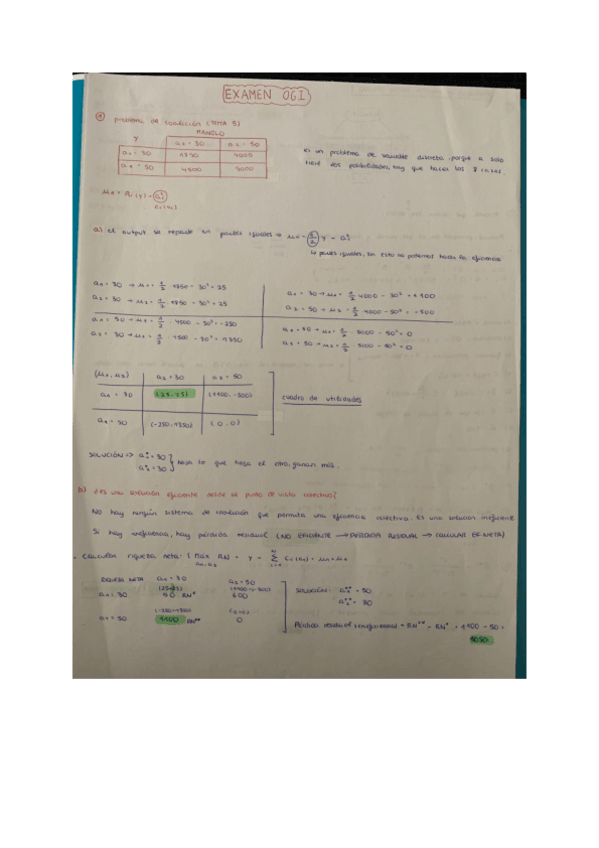 EXAMEN OGI
① problema de coalición (TEMA 5)
MANOLO
Y a2 = 30 a2 = 50
a1 = 30 1750 4000
a1 = 50 4500 5000
es un problema de variable discreta, porque a solo
tiene dos posibilidades, hay que hacer los 8 casos.
a) el output se reparte en partes iguales → μi = 1/2 Y - ai²
a1 = 30 → μ1 = 1/2 · 1750 - 30² = 25
a2 = 30 → μ2 = 1/2 · 1750 - 30² = 25
a1 = 30 → μ1 = 1/2 4000 - 30² = 1100
a2 = 50 → μ2 = 1/2 4000 - 50² = -500
a1 = 50 → μ1 = 1/2 · 4500 - 50² = -250
a2 = 30 → μ2 = 1/2 · 4500 - 30² = 1350
a1 = 50 → μ1 = 1/2 · 5000 - 50² = 0
a2 = 50 → μ2 = 1/2 · 5000 - 50² = 0
(μ1, μ2) a2 = 30 a2 = 50
a1 = 30 (25, 25) (1100, -500)
a1 = 50 (-250, 1350) (0, 0)
cuadro de utilidades
SOLUCIÓN => a1* = 30
a2* = 30
haga lo que haga el otro, ganan más.
b) ¿Es una solución eficiente desde el punto de vista colectivo?
NO hay ningún sistema de coalición que permita una eficiencia colectiva. Es una solución ineficiente.
Si hay ineficiencia, hay pérdida residual (NO EFICIENTE → PÉRDIDA RESIDUAL → CALCULAR RIQ. NETA)
- Calcular riqueza neta:
RIQUEZA NETA a2 = 30 a2 = 50
(25+25) (1100+(-500))
a1 = 30 50 RN* 600
(-250+1350) (0+0)
a1 = 50 1100 RN** 0
SOLUCIÓN: a1** = 50
a2** = 30
Pérdida residual = RN** - RN* = 1100 - 50 =
1050